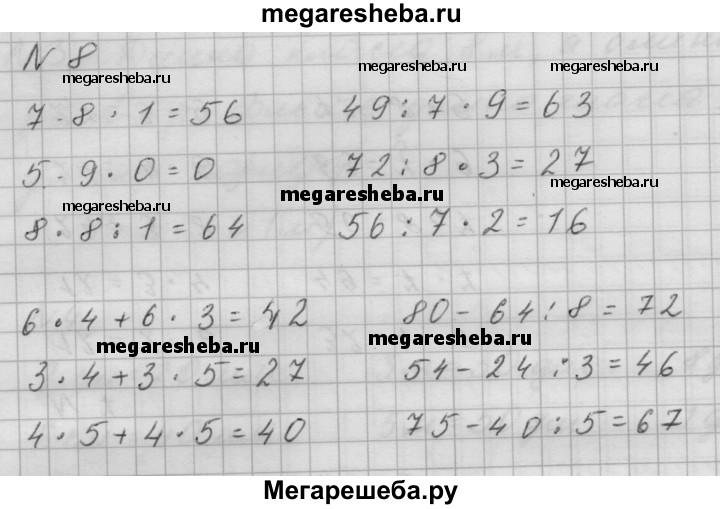 megaresheba.ru
N 8
megaresheba.ru megaresheba.ru megaresheba.ru
7 · 8 · 1 = 56 49 : 7 · 9 = 63
5 · 9 · 0 = 0 72 : 8 · 3 = 27
megaresheba.ru megaresheba.ru megaresheba.ru
8 · 8 : 1 = 64 56 : 7 · 2 = 16
6 · 4 + 6 · 3 = 42 80 - 64 : 8 = 72
megaresheba.ru megaresheba.ru
3 · 4 + 3 · 5 = 27 54 - 24 : 3 = 46
4 · 5 + 4 · 5 = 40 75 - 40 : 5 = 67
Мегарешеба.ру